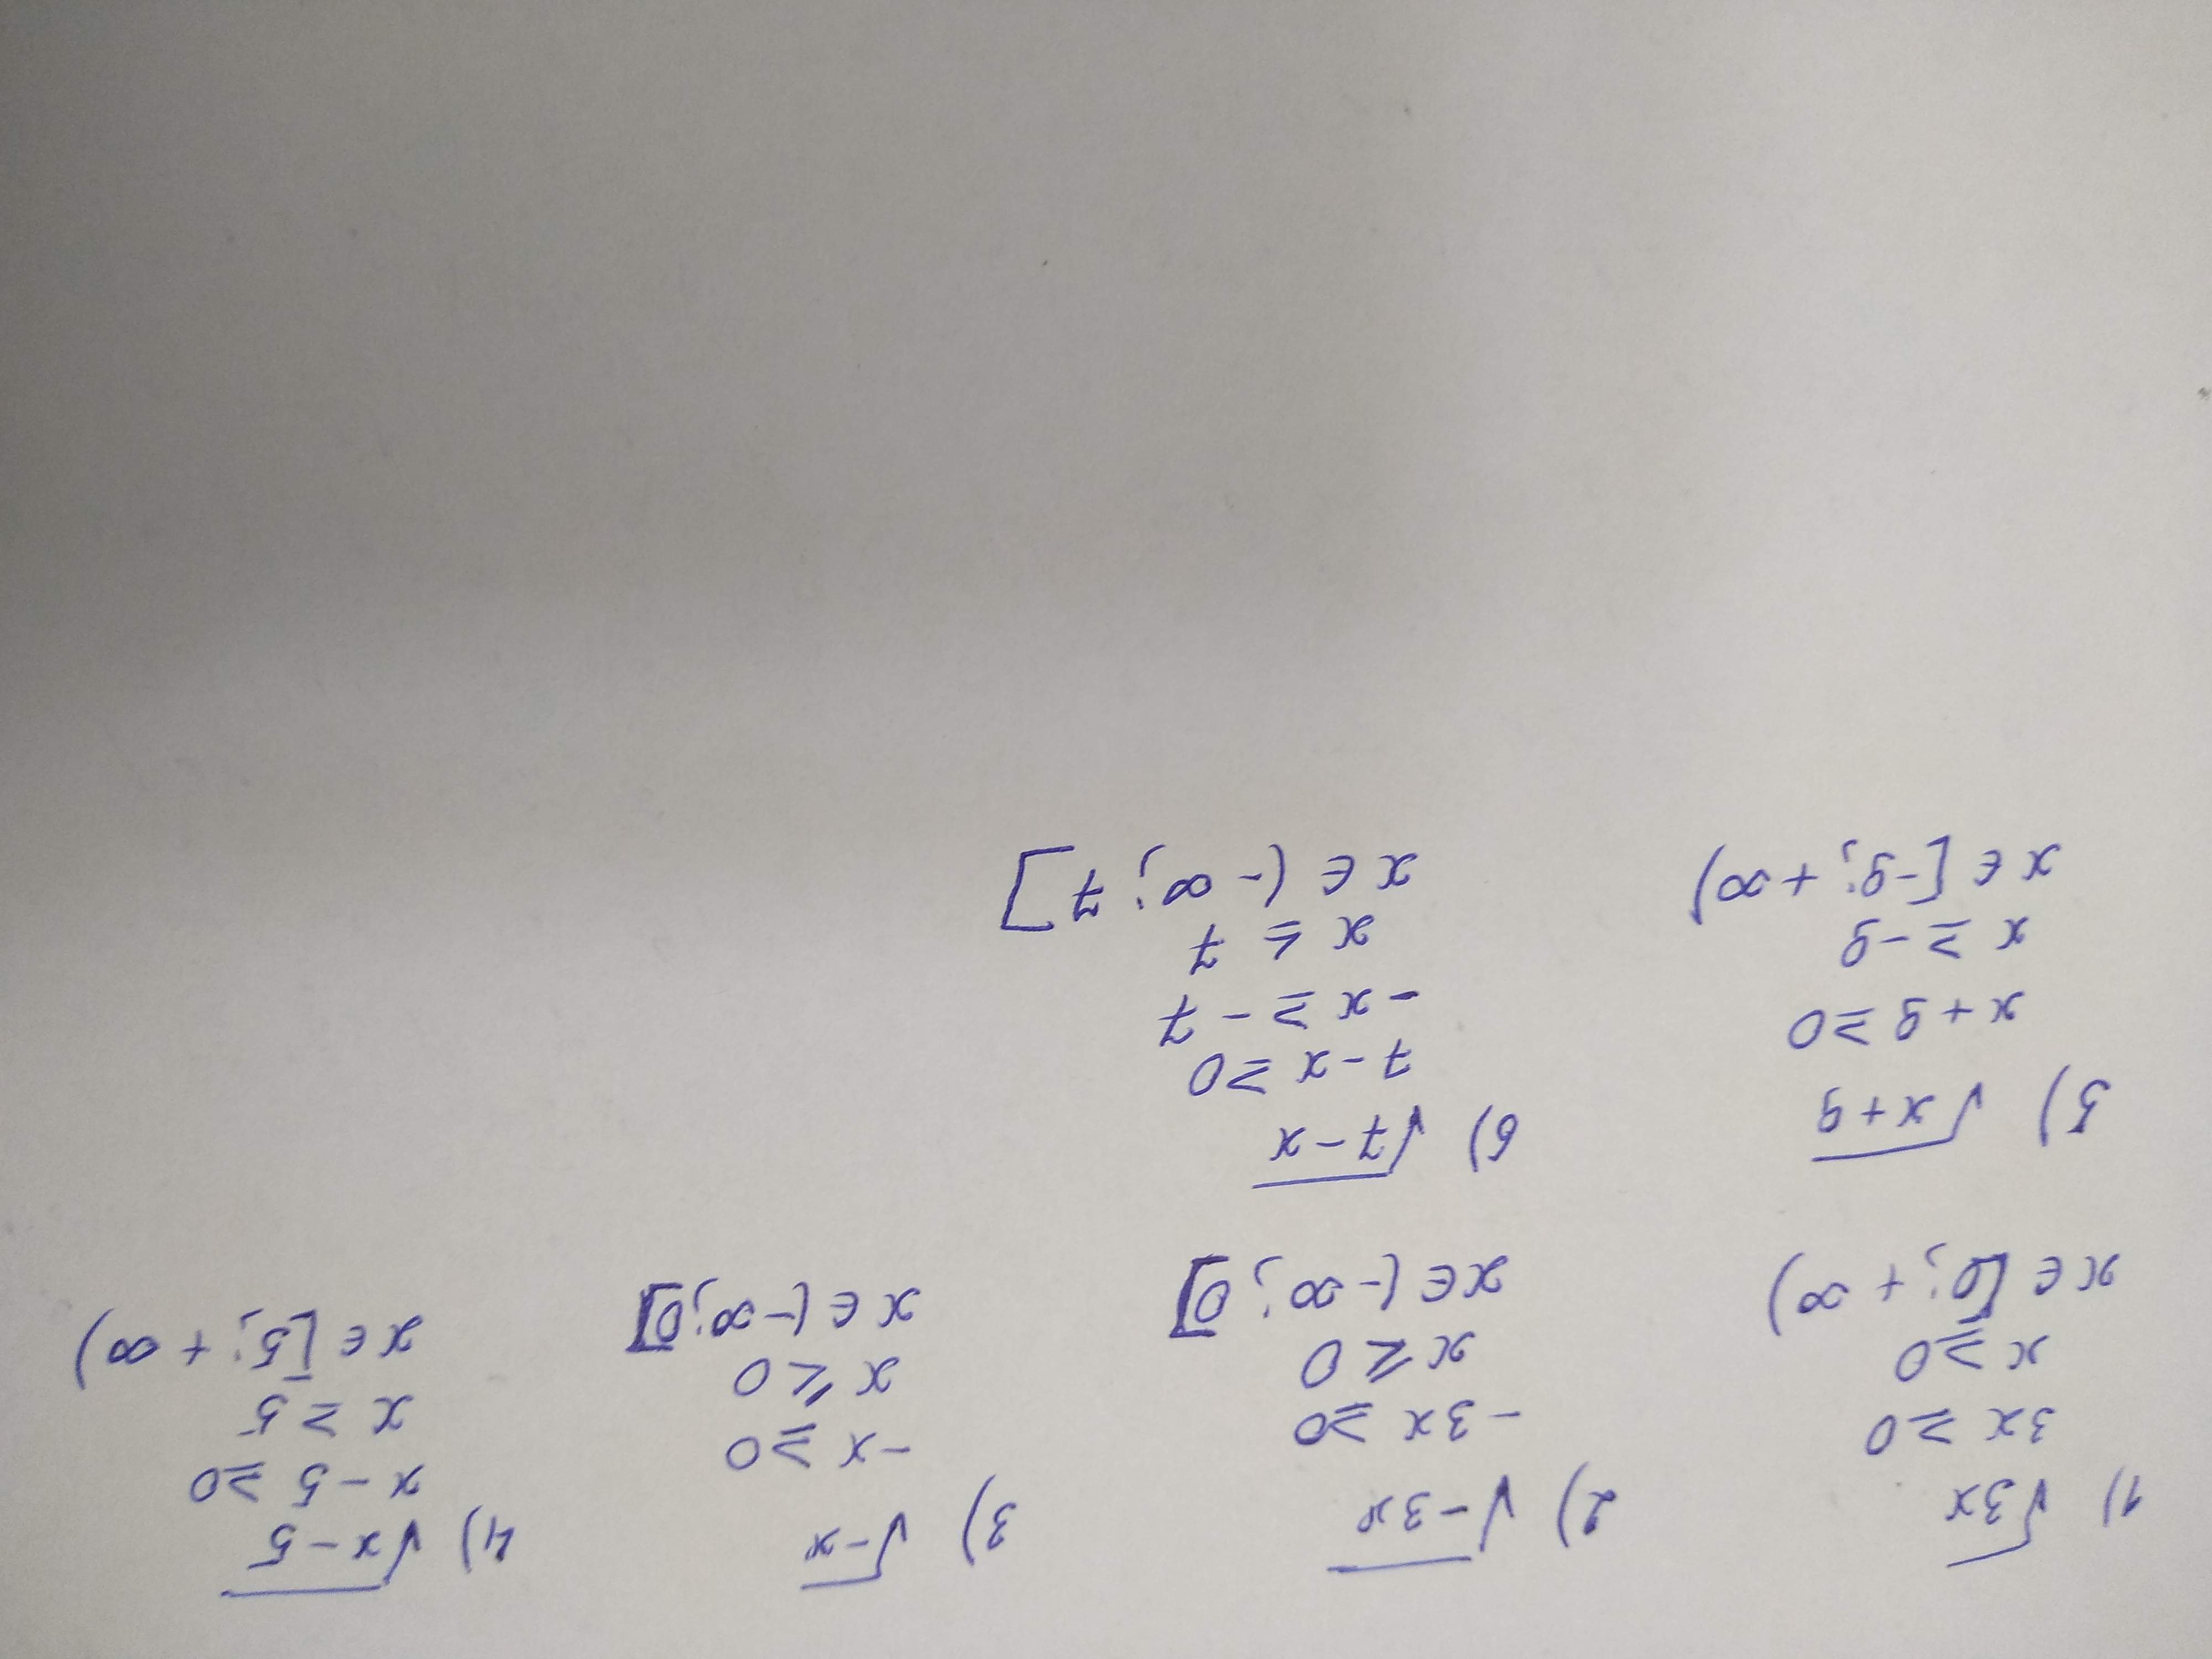 1) √3x
3x ≥ 0
x ≥ 0
x ∈ [0; +∞)
2) √-3x
-3x ≥ 0
x ≤ 0
x ∈ (-∞; 0]
3) √-x
-x ≥ 0
x ≤ 0
x ∈ (-∞; 0]
4) √x-5
x-5 ≥ 0
x ≥ 5
x ∈ [5; +∞)
5) √x+9
x+9 ≥ 0
x ≥ -9
x ∈ [-9; +∞)
6) √7-x
7-x ≥ 0
-x ≥ -7
x ≤ 7
x ∈ (-∞; 7]